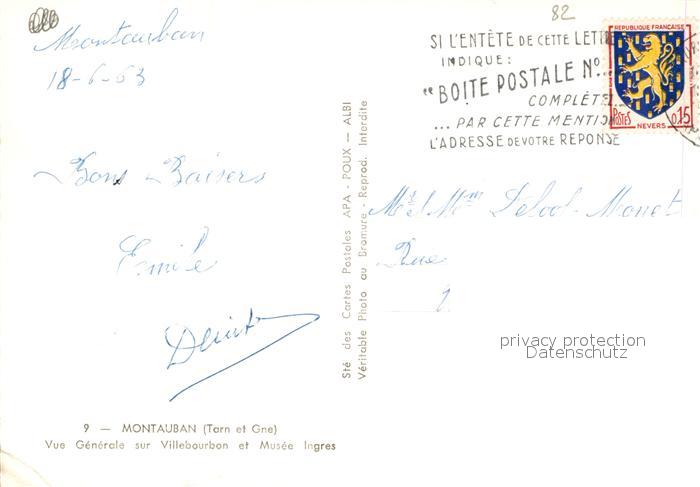 82
Montauban
18-6-63
Bons Baisers
Emile
SI L'ENTÊTE DE CETTE LETTRE
INDIQUE :
"BOITE POSTALE N°...
COMPLÉTEZ...
...PAR CETTE MENTION
L'ADRESSE DE VOTRE REPONSE
REPUBLIQUE FRANÇAISE
POSTES
0,15
NEVERS
Sté des Cartes Postales APA - POUX - ALBI
Véritable Photo au Bromure - Reprod. Interdite
Rue
privacy protection
Datenschutz
9 — MONTAUBAN (Tarn et Gne)
Vue Générale sur Villebourbon et Musée Ingres